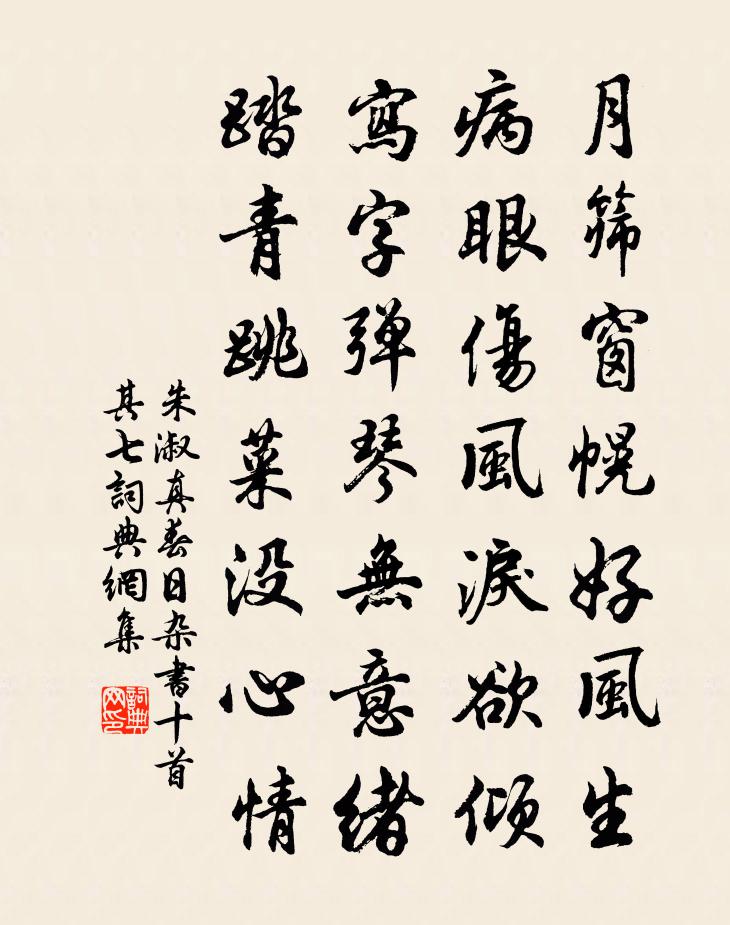 月篩窗幌好風生
病眼傷風淚欲傾
寫字弹琴無意緒
踏青跳菜没心情
朱淑真春日杂書十首
其七詞典網集
詞典网印